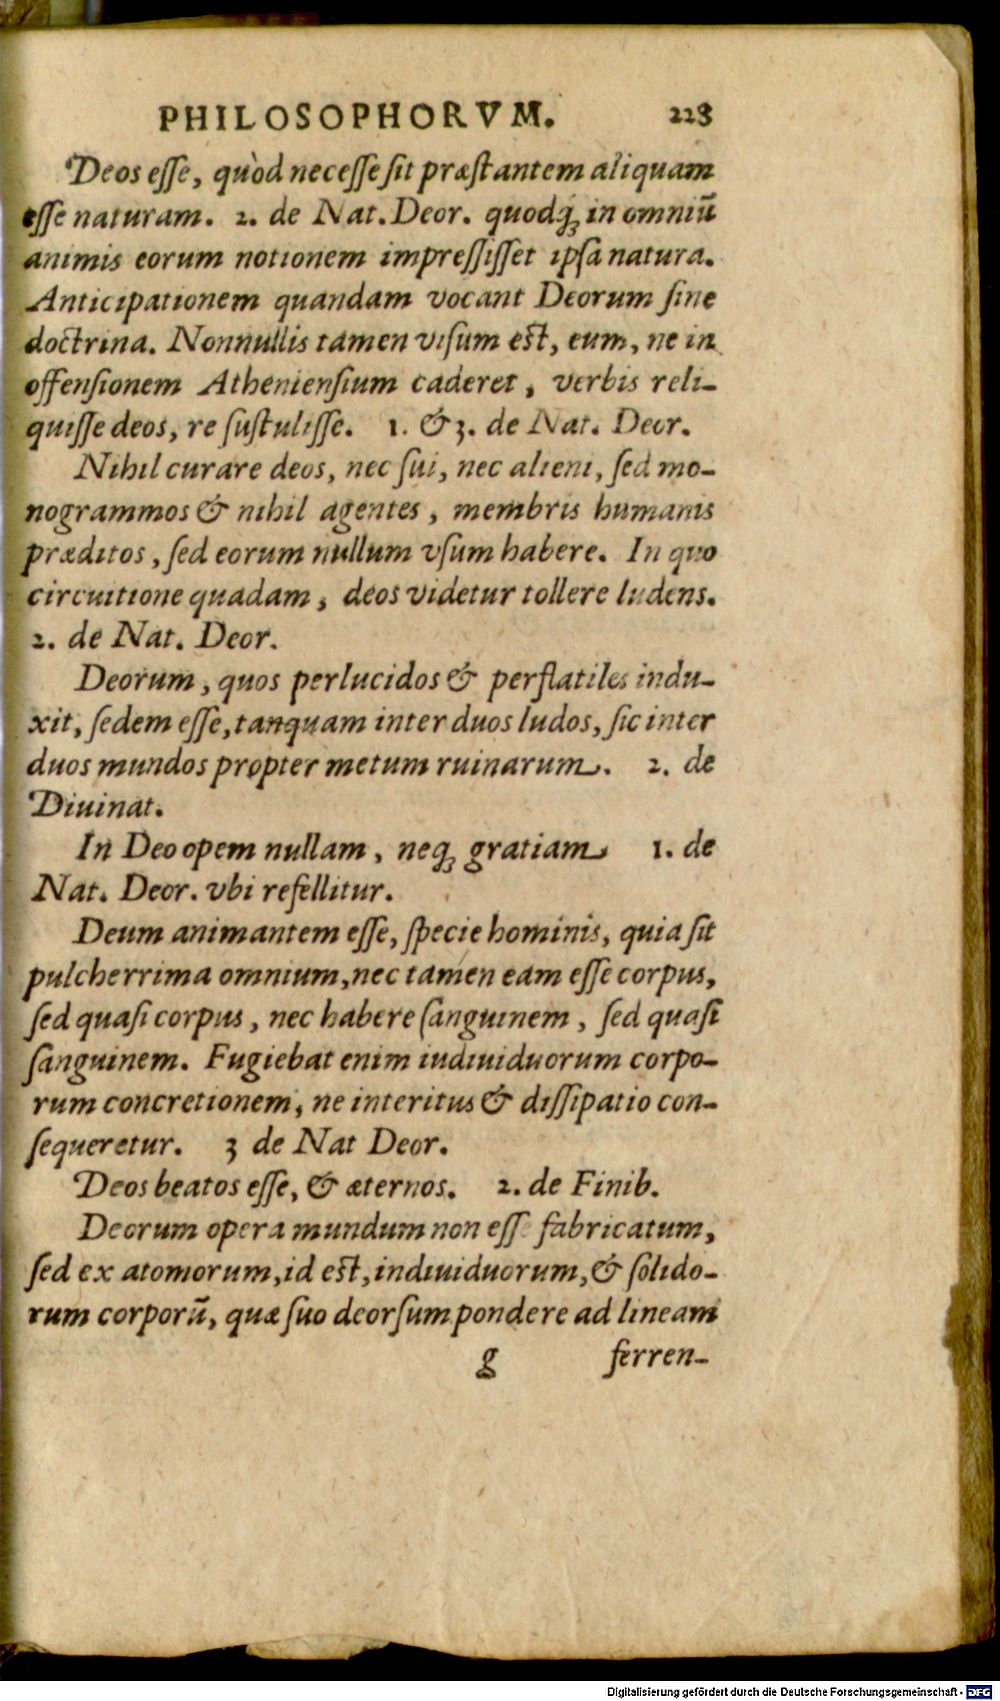 PHILOSOPHORVM. 223
Deos esse, quòd necesse sit præstantem aliquam
esse naturam. 2. de Nat. Deor. quodq́; in omniū
animis eorum notionem impressisset ipsa natura.
Anticipationem quandam vocant Deorum sine
doctrina. Nonnullis tamen visum est, eum, ne in
offensionem Atheniensium caderet, verbis reli-
quisse deos, re sustulisse. 1. & 3. de Nat. Deor.
Nihil curare deos, nec sui, nec alieni, sed mo-
nogrammos & nihil agentes, membris humanis
præditos, sed eorum nullum vsum habere. In quo
circuitione quadam, deos videtur tollere ludens.
2. de Nat. Deor.
Deorum, quos perlucidos & perflatiles indu-
xit, sedem esse, tanquam inter duos ludos, sic inter
duos mundos propter metum ruinarum. 2. de
Diuinat.
In Deo opem nullam, neq; gratiam 1. de
Nat. Deor. vbi refellitur.
Deum animantem esse, specie hominis, quia sit
pulcherrima omnium, nec tamen eam esse corpus,
sed quasi corpus, nec habere sanguinem, sed quasi
sanguinem. Fugiebat enim iudiuiduorum corpo-
rum concretionem, ne interitus & dissipatio con-
sequeretur. 3 de Nat Deor.
Deos beatos esse, & æternos. 2. de Finib.
Deorum opera mundum non esse fabricatum,
sed ex atomorum, id est, indiuiduorum, & solido-
rum corporū, quæ suo deorsum pondere ad lineam
g ferren-
Digitalisierung gefördert durch die Deutsche Forschungsgemeinschaft - DFG